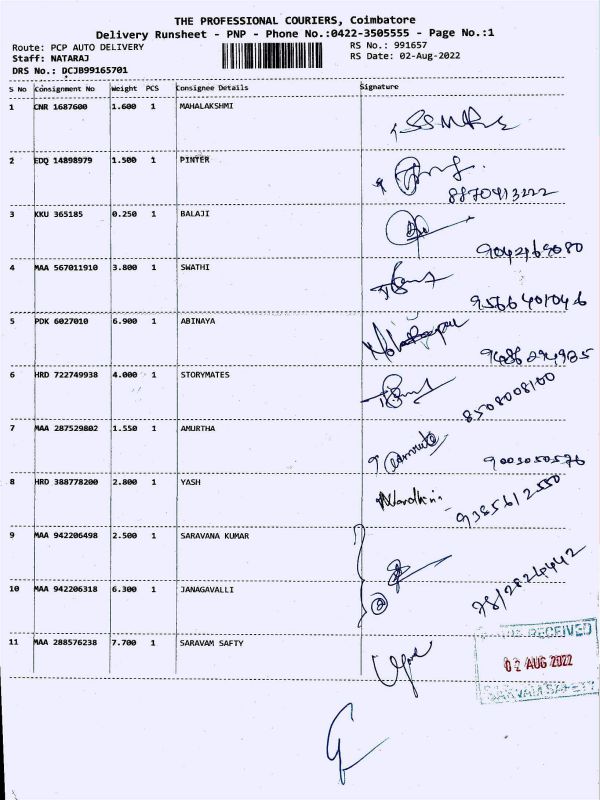 THE PROFESSIONAL COURIERS, Coimbatore
Delivery Runsheet - PNP - Phone No.:0422-3505555 - Page No.:1
Route: PCP AUTO DELIVERY RS No.: 991657
Staff: NATARAJ RS Date: 02-Aug-2022
DRS No.: DCJB99165701
S No Consignment No Weight PCS Consignee Details Signature
1 CNR 1687600 1.600 1 MAHALAKSHMI
2 EDQ 14898979 1.500 1 PINTER
8870413222
3 KKU 365185 0.250 1 BALAJI
9042169080
4 MAA 567011910 3.800 1 SWATHI
9566401046
5 PDK 6027010 6.900 1 ABINAYA
9486294985
6 HRD 722749938 4.000 1 STORYMATES
8508008100
7 MAA 287529802 1.550 1 AMURTHA
9003050576
8 HRD 388778200 2.800 1 YASH
9385612550
9 MAA 942206498 2.500 1 SARAVANA KUMAR
10 MAA 942206318 6.300 1 JANAGAVALLI
2
11 MAA 288576238 7.700 1 SARAVAM SAFTY
RECEIVED
02 AUG 2022
SARVAM SAFETY